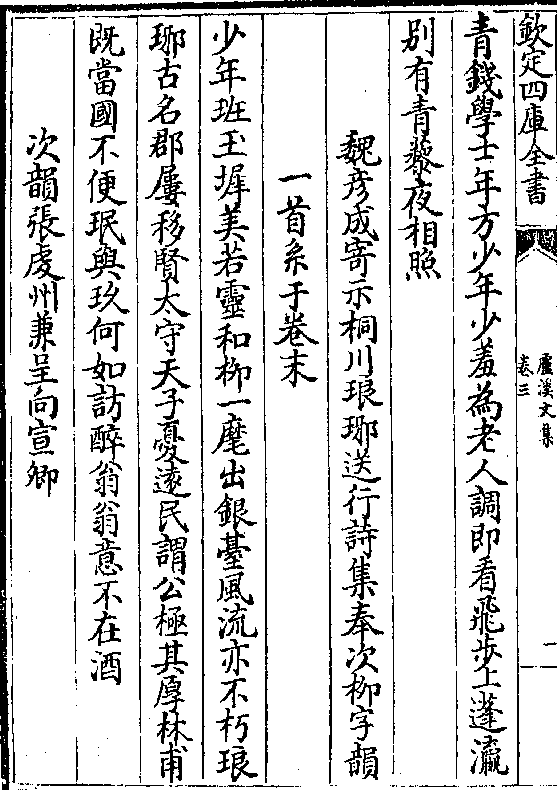 欽定四庫全書
盧溪文集
卷三
一
青錢學士年方少年少羞為老人調即看飛步上蓬瀛
别有青藜夜相照
魏彥成寄示桐川琅琊送行詩集奉次柳字韻
一首系于卷末
少年班玉墀美若靈和柳一麾出銀臺風流亦不朽琅
琊古名郡屢移賢太守天子憂逺民謂公極其厚林甫
既當國不便珉與玖何如訪醉翁翁意不在酒
次韻張䖏州兼呈向宣卿